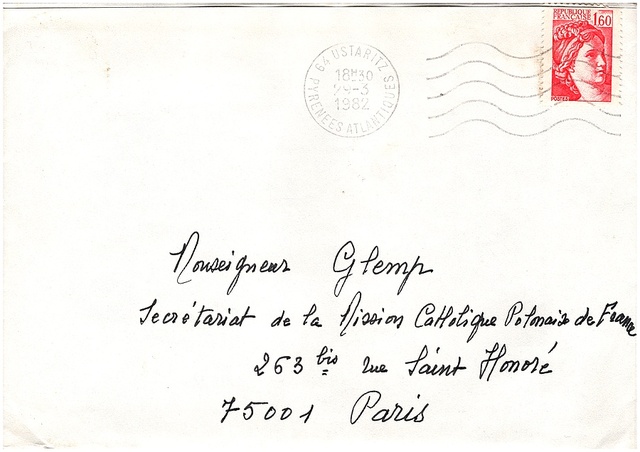 REPUBLIQUE
FRANÇAISE
1,60
POSTES
64 USTARITZ
18H30
-3
1982
PYRENEES ATLANTIQUES
Monseigneur Glemp
Secrétariat de la Mission Catholique Polonaise de France
263 bis rue Saint Honoré
75001 Paris